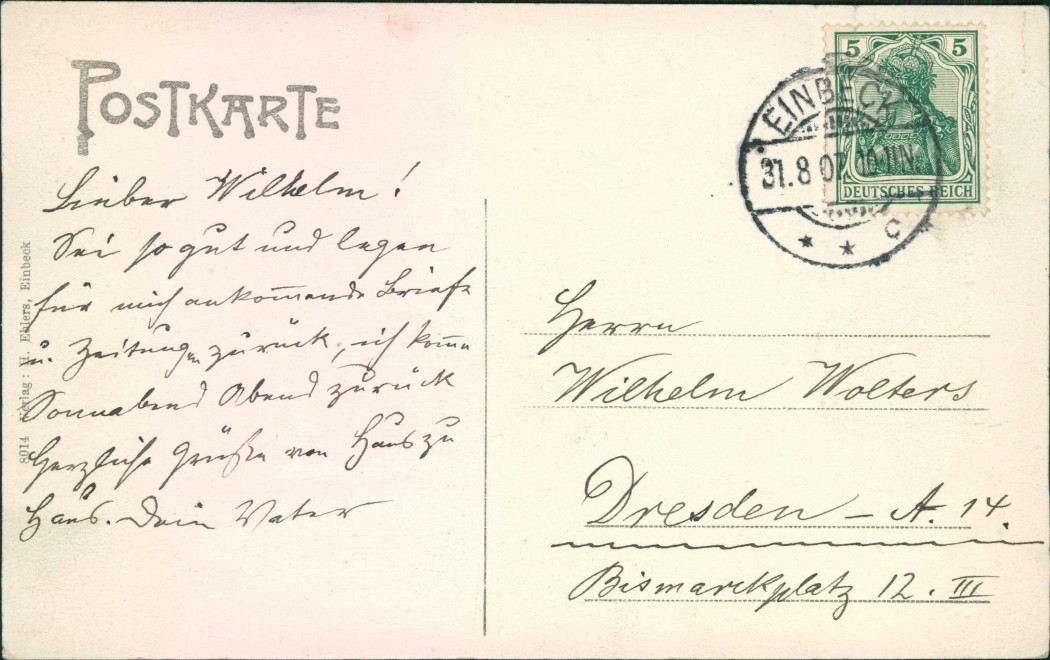 POSTKARTE
Lieber Wilhelm!
Sei so gut und legen
für mich ankom̅ende Briefe
u. Zeitungen zurück, ich kom̅e
Sonnabend Abend zurück
Herzliche Grüße von Haus zu
Haus. Dein Vater
8014 Verlag: H. Ehlers, Einbeck
5 5
DEUTSCHES REICH
EINBECK
31.8 07 10-11N
* * c
Herrn
Wilhelm Wolters
Dresden – A. 14.
Bismarckplatz 12. III